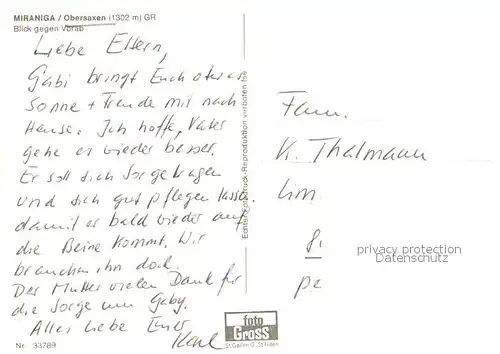 MIRANIGA / Obersaxen (1302 m) GR
Blick gegen Vorab
Liebe Eltern,
Gabi bringt Euch etwas
Sonne + Freude mit nach
Hause. Ich hoffe, Vater
gehe es wieder besser.
Er soll sich Sorge tragen
und sich gut pflegen lassen
damit er bald wieder auf
die Beine kommt. Wir
brauchen ihn doch.
Der Mutter vielen Dank für
die Sorge um Gaby.
Alles Liebe Euer
Karl
Nr. 33789
Echte Fotodruck-Reproduktion verboten
foto
Gross
St. Gallen
Fam.
K. Thalmann
privacy protection
DATENSCHUTZ